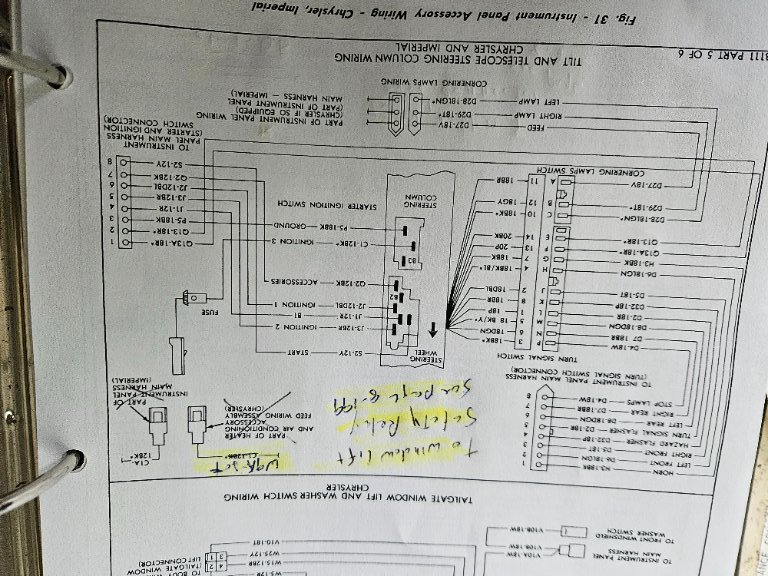 TO INSTRUMENT PANEL
MAIN HARNESS
V10A-18W
V10B-18W
TO FRONT WINDSHIELD
WASHER SWITCH
V10B-18W
W25-12BR
W25-12Y
V10-18T
TO BODY
(TAILGATE WINDOW
LIFT CONNECTOR)
TAILGATE WINDOW LIFT AND WASHER SWITCH WIRING
CHRYSLER
HORN
LEFT FRONT
RIGHT FRONT
HAZARD FLASHER
TURN SIGNAL FLASHER
LEFT REAR
RIGHT REAR
STOP LAMPS
H3-18BK
D6-18LGN
D5-18T
D32-18P
D2-18R
D8-18DGN
D7-18BR
D4-18W
1
2
3
4
5
6
7
8
TO INSTRUMENT PANEL MAIN HARNESS
(TURN SIGNAL SWITCH CONNECTOR)
to window lift
Safety Relay
See page 8-199
C1-12BK*
Unk Sct
C1A
12BK*
PART OF HEATER
AND AIR CONDITIONING
ACCESSORY
FEED WIRING ASSEMBLY
(CHRYSLER)
PART OF
INSTRUMENT PANEL
MAIN HARNESS
(IMPERIAL)
TURN SIGNAL SWITCH
D4-18W
P
3
18BK*
D7-18BR
N
6
18DGN
D8-18DGN
M
5
18 BK/Y*
D2-18R
L
1
18P
D32-18P
K
8
18BR
D5-18T
J
2
18DBL
D6-18LGN
H
4
18BK/BL*
H3-18BK
G
7
18BK
Q13A-18R*
F
13
20P
Q13-18R*
E
14
20BK
D28-18LGN*
C
10
18BK*
D29-18T*
B
12
18GY
D27-18V
A
11
18BR
CORNERING LAMPS SWITCH
STEERING
WHEEL
STEERING
COLUMN
S2-12V
START
J3-12BR
IGNITION 2
J1-12R
B1
J2-12DBL
IGNITION 1
B2
Q2-12BK
ACCESSORIES
B3
C1-12BK*
IGNITION 3
P5-18BK
GROUND
STARTER IGNITION SWITCH
FUSE
Q13A-18R*
1
Q13-18R*
2
P5-18BK
3
J1-12R
4
J3-12BR
5
J2-12DBL
6
Q2-12BK
7
S2-12V
8
TO INSTRUMENT
PANEL MAIN HARNESS
(STARTER AND IGNITION
SWITCH CONNECTOR)
FEED
D27-18V
RIGHT LAMP
D29-18T*
LEFT LAMP
D28-18LGN*
CORNERING LAMPS WIRING
PART OF INSTRUMENT PANEL WIRING
(CHRYSLER IF SO EQUIPPED)
(PART OF INSTRUMENT PANEL
MAIN HARNESS — IMPERIAL)
TILT AND TELESCOPE STEERING COLUMN WIRING
CHRYSLER AND IMPERIAL
B111 PART 5 OF 6
Fig. 31 - Instrument Panel Accessory Wiring - Chrysler, Imperial